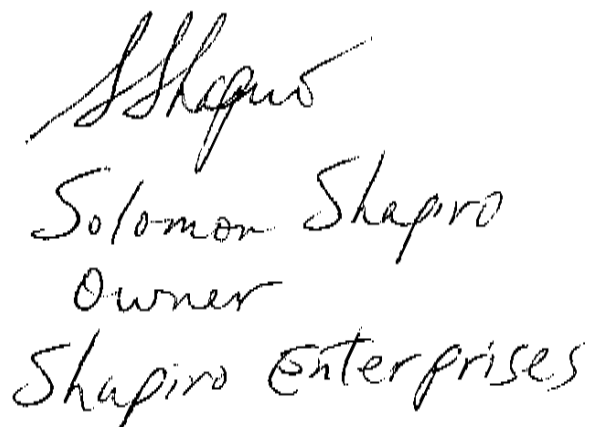 SShapiro
Solomon Shapiro
Owner
Shapiro Enterprises